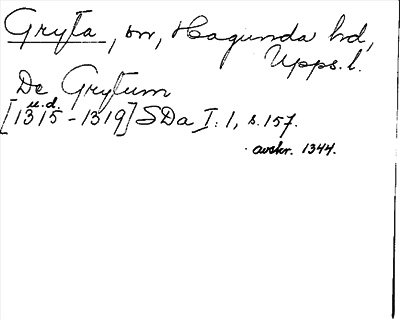 Gryta, sn, Hagunda hd,
Upps. l.
De Grytum
u.d.
[1315-1319] SDa I:1, s.157.
avskr. 1344.